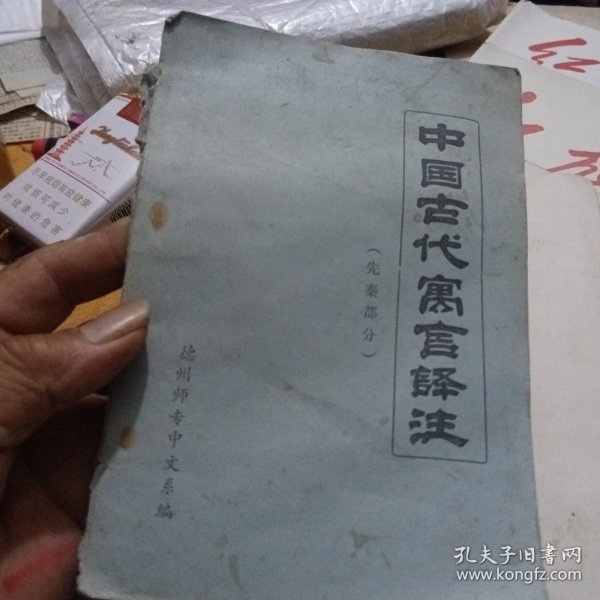 中国古代寓言译注
（先秦部分）
德州师专中文系编
尽早戒烟有益健康
戒烟可减少
对健康的危害
红
旗
孔夫子旧书网
www.kongfz.com